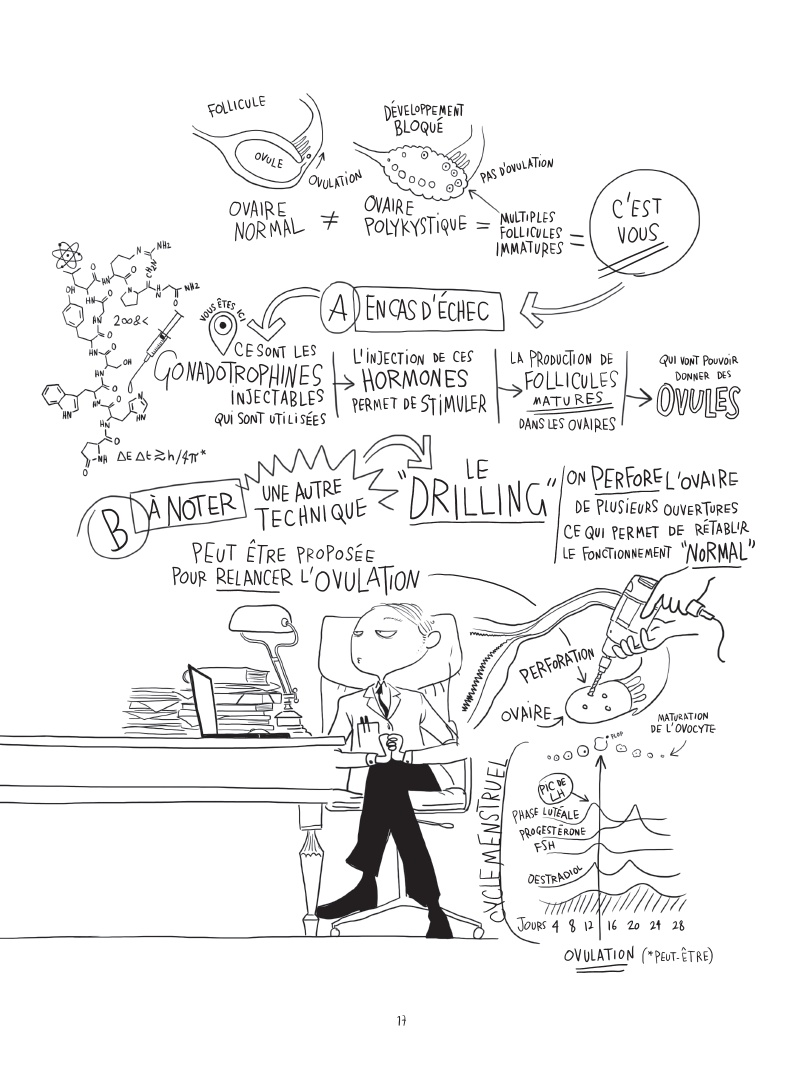 FOLLICULE
OVULE
OVULATION
OVAIRE
NORMAL
≠
DÉVELOPPEMENT
BLOQUÉ
PAS D'OVULATION
OVAIRE
POLYKYSTIQUE
=
MULTIPLES
FOLLICULES
IMMATURES
=
C'EST
VOUS
A EN CAS D'ÉCHEC
VOUS ÊTES ICI
CE SONT LES
GONADOTROPHINES
INJECTABLES
QUI SONT UTILISÉES
L'INJECTION DE CES
HORMONES
PERMET DE STIMULER
LA PRODUCTION DE
FOLLICULES
MATURES
DANS LES OVAIRES
QUI VONT POUVOIR
DONNER DES
OVULES
NH
NH2
HN
O
N
O
HN
NH2
O
OH
O
HN
O
HN
OH
O
HN
O
HN
N
HN
O
NH
O
2∞&<
ΔE Δt ≳ h/4π*
B À NOTER
UNE AUTRE
TECHNIQUE
LE
"DRILLING"
ON PERFORE L'OVAIRE
DE PLUSIEURS OUVERTURES
CE QUI PERMET DE RÉTABLIR
LE FONCTIONNEMENT "NORMAL"
PEUT ÊTRE PROPOSÉE
POUR RELANCER L'OVULATION
PERFORATION
OVAIRE
MATURATION
DE L'OVOCYTE
*PLOP
CYCLE MENSTRUEL
PIC DE
LH
PHASE LUTÉALE
PROGESTÉRONE
FSH
OESTRADIOL
JOURS 4 8 12 16 20 24 28
OVULATION (*PEUT-ÊTRE)
17